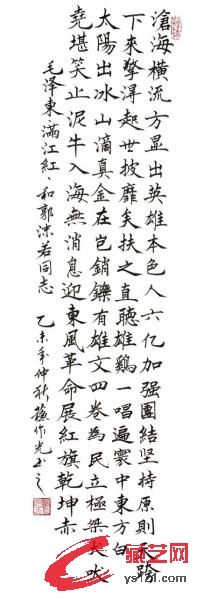 滄海橫流方显出英雄本色人六亿加强團結坚持原則天
下来擎淂起世披靡矣扶之直聽雄鷄一唱遍寰中東方白
太陽出冰山滴真金在岂銷鑠有雄文四卷為民立極桀犬吠
堯堪笑止泥牛入海無消息迎東風革命展紅旗乾坤赤
毛泽東满江紅、和郭沫若同志
乙未年仲秋作光书之
藏艺网